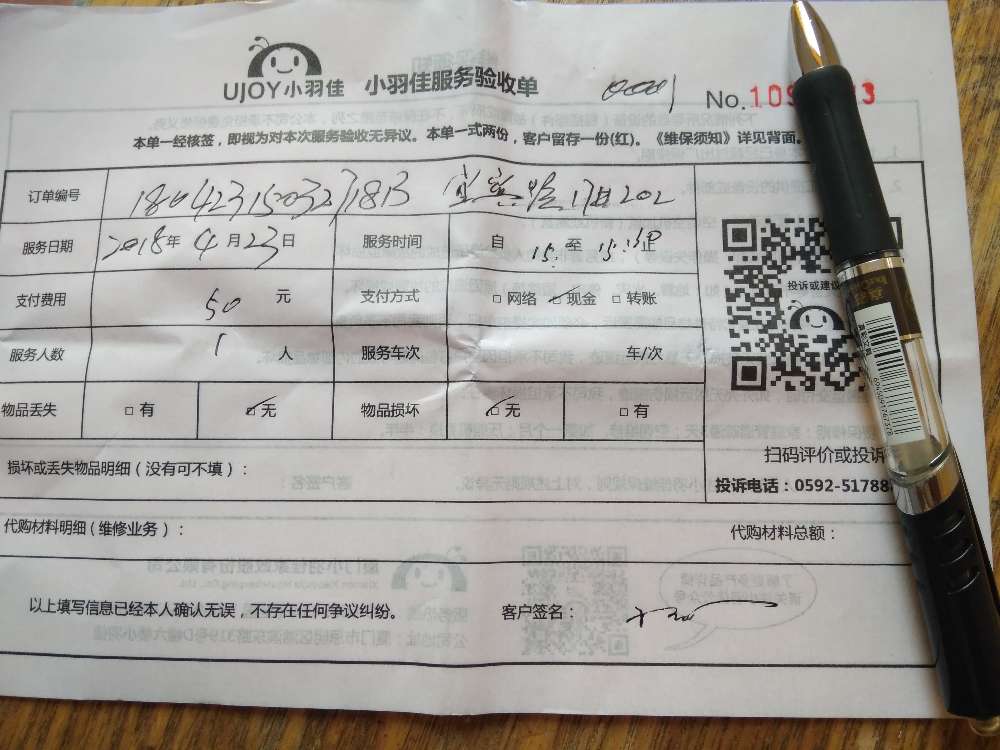 UJOY小羽佳 小羽佳服务验收单 0001 No.109 3
本单一经核签，即视为对本次服务验收无异议。本单一式两份，客户留存一份(红)。《维保须知》详见背面。
订单编号 1804231503271813 202
服务日期 2018年4月23日 服务时间 自 15: 至 15:30止
支付费用 50 元 支付方式 □网络 ☑现金 □转账
投诉或建议
服务人数 1 人 服务车次 车/次
物品丢失 □有 ☑无 物品损坏 ☑无 □有
扫码评价或投诉
损坏或丢失物品明细（没有可不填）：
投诉电话：0592-51788
代购材料明细（维修业务）： 代购材料总额：
以上填写信息已经本人确认无误，不存在任何争议纠纷。 客户签名：